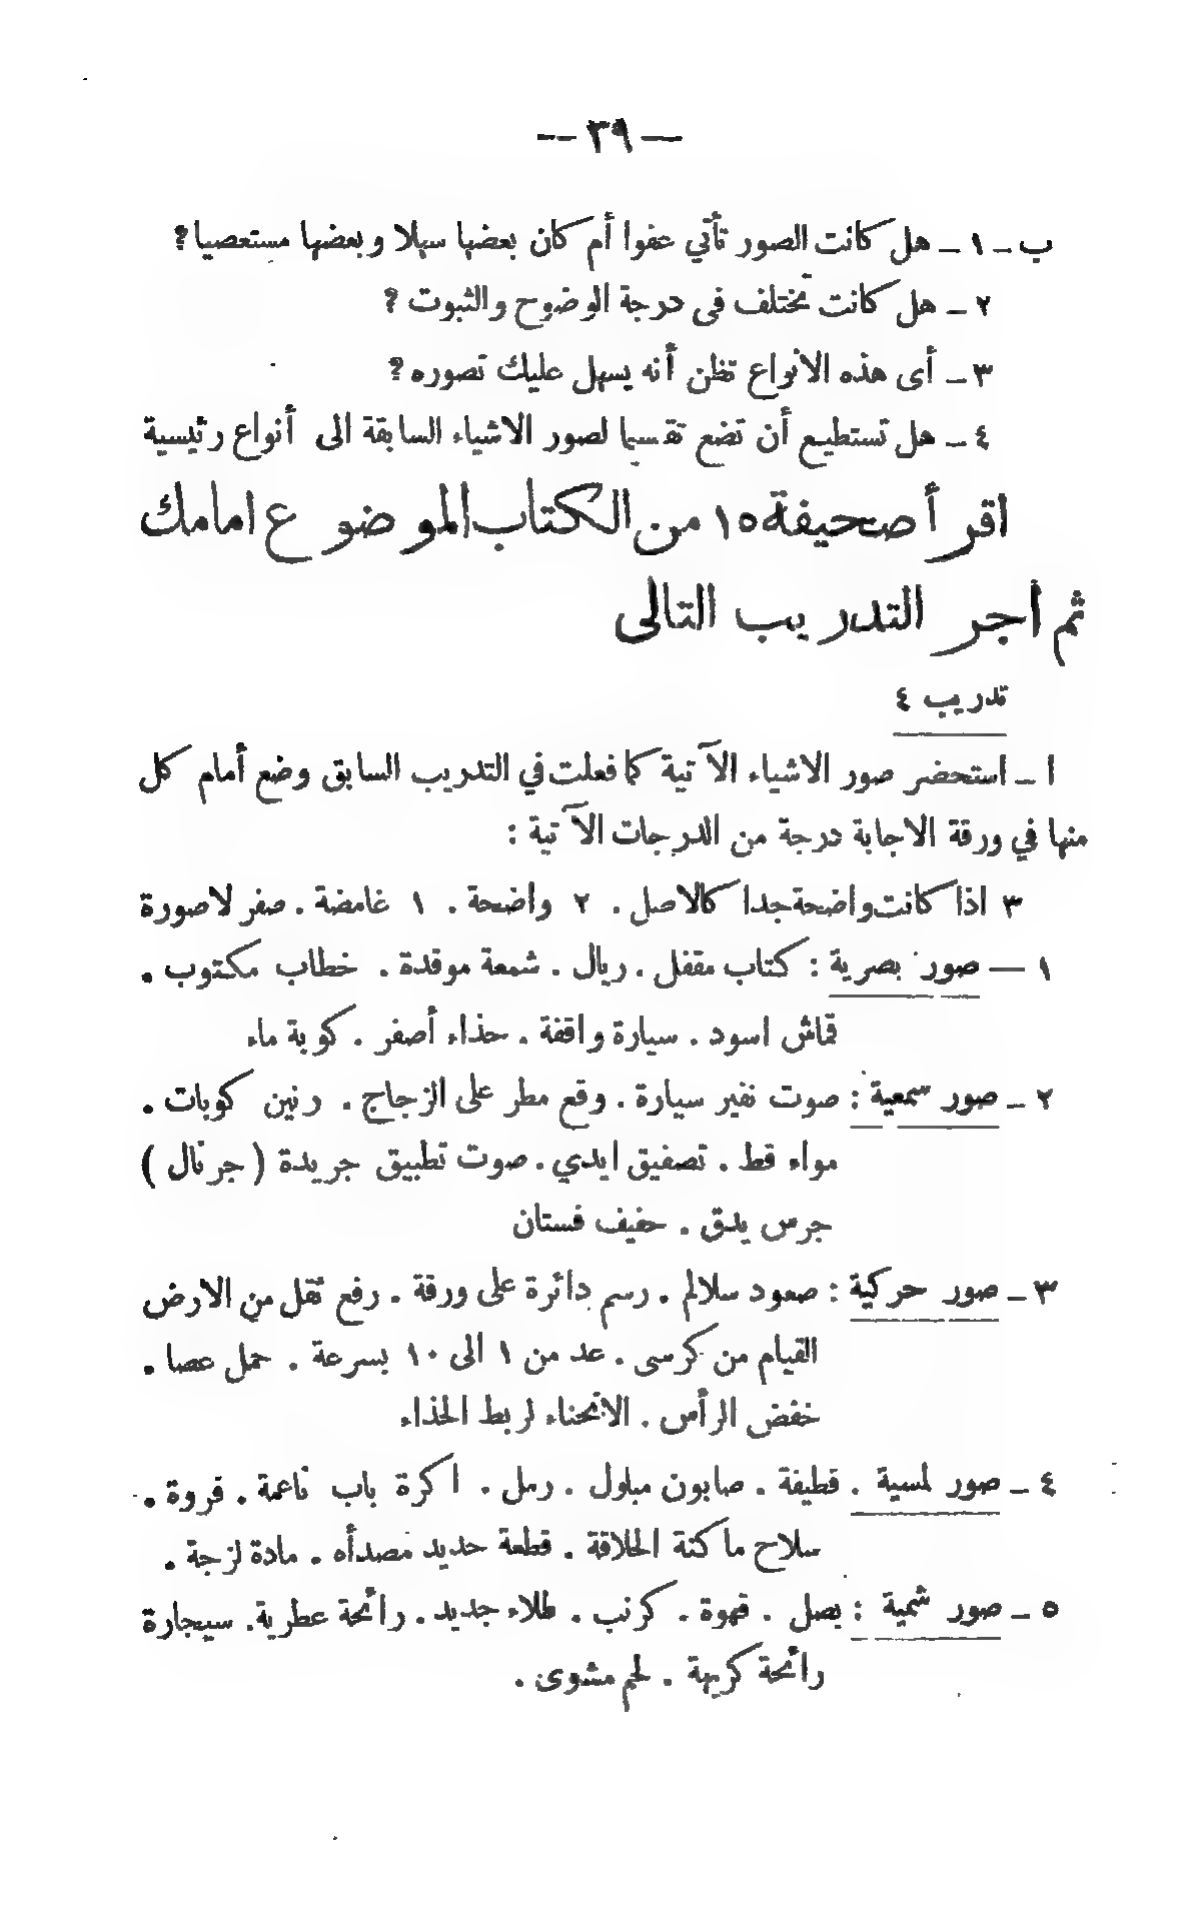 — ٣٩ —
ب - ١ - هل كانت الصور تأتي عفوا أم كان بعضها سهلا وبعضها مستعصيا؟
٢ - هل كانت تختلف فى درجة الوضوح والثبوت ؟
٣ - أى هذه الانواع تظن أنه يسهل عليك تصوره؟
٤ - هل تستطيع أن تضع تقسيما لصور الاشياء السابقة الى أنواع رئيسية
اقرأ صحيفة ١٥ من الكتاب الموضوع امامك
ثم اجر التدريب التالى
تدريب ٤
ا - استحضر صور الاشياء الآتية كما فعلت في التدريب السابق وضع أمام كل
منها في ورقة الاجابة درجة من الدرجات الآتية :
٣ اذا كانت واضحة جدا كالاصل . ٢ واضحة . ١ غامضة . صفر لاصورة
١ — صور بصرية : كتاب مقفل . ريال . شمعة موقدة . خطاب مكتوب .
قماش اسود . سيارة واقفة . حذاء أصفر . كوبة ماء
٢ - صور سمعية : صوت نفير سيارة . وقع مطر على الزجاج . رنين كوبات .
مواء قط . تصفيق ايدي . صوت تطبيق جريدة ( جرنال )
جرس يدق . حفيف فستان
٣ - صور حركية : صعود سلالم . رسم دائرة على ورقة . رفع ثقل من الارض
القيام من كرسى . عد من ١ الى ١٠ بسرعة . حمل عصا .
خفض الرأس . الانحناء لربط الحذاء
٤ - صور لمسية . قطيفة . صابون مبلول . رمل . اكرة باب ناعمة . فروة .
سلاح ماكنة الحلاقة . قطعة حديد مصدأه . مادة لزجة .
٥ - صور شمية : بصل . قهوة . كرنب . طلاء جديد . رائحة عطرية . سيجارة
رائحة كريهة . لحم مشوى .